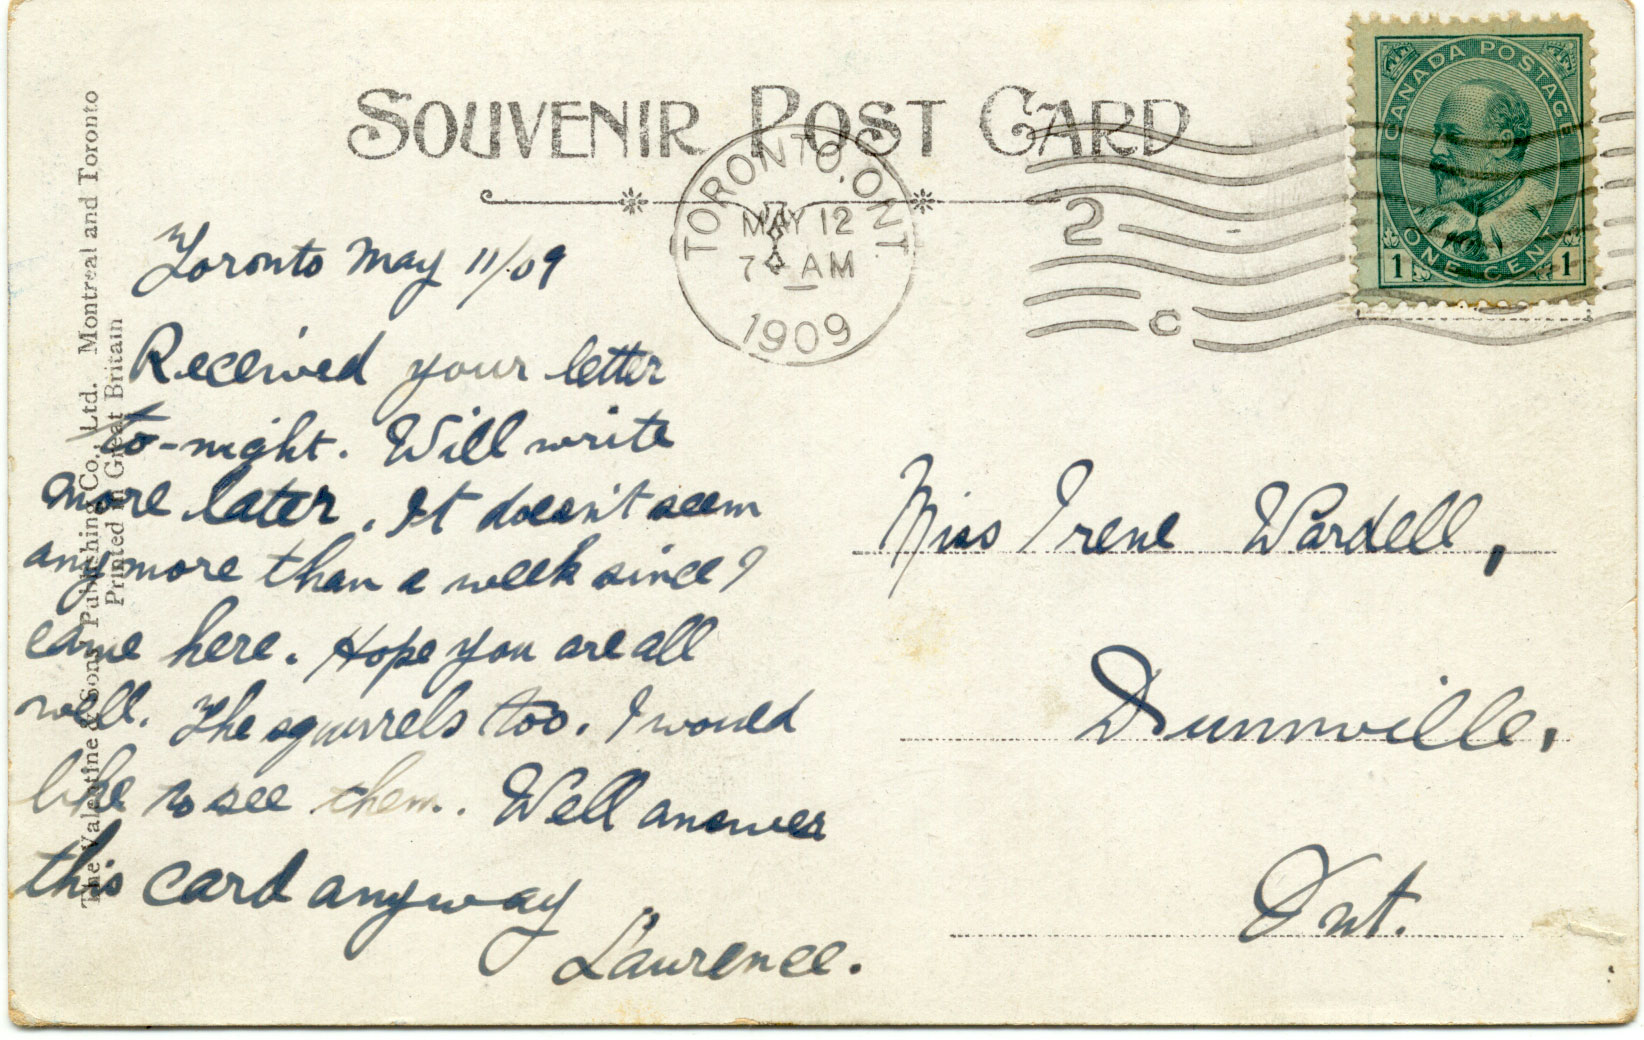 SOUVENIR POST CARD
TORONTO, ONT
MAY 12
7 AM
1909
2
C
CANADA POSTAGE
ONE CENT
1 1
The Valentine & Sons Publishing Co., Ltd. Montreal and Toronto
Printed in Great Britain
Toronto May 11/09
Received your letter
to-night. Will write
more later. It doesn't seem
anymore than a week since I
came here. Hope you are all
well. The squirrels too. I would
like to see them. Well answer
this card anyway
Laurence.
Miss Irene Wardell,
Dunnville,
Ont.